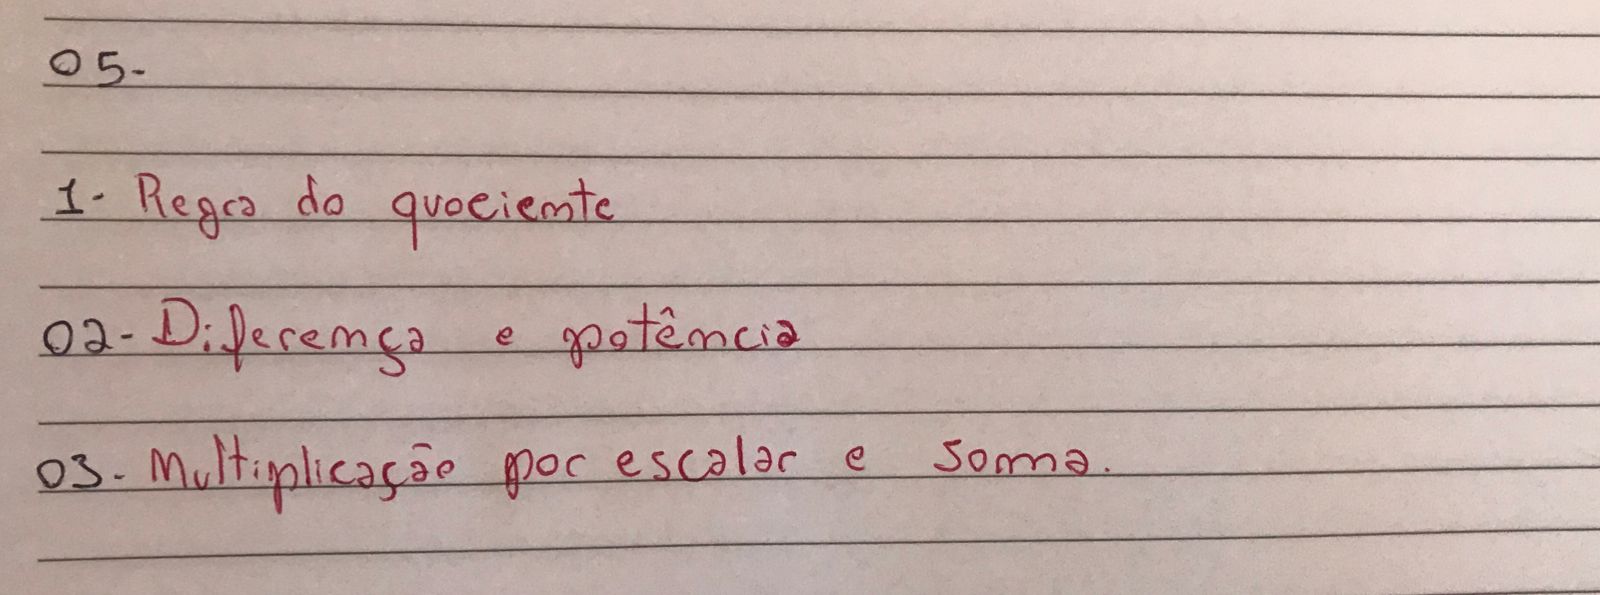 05-
1- Regra do quociente
02- Diferença e potência
03- Multiplicação por escalar e soma.